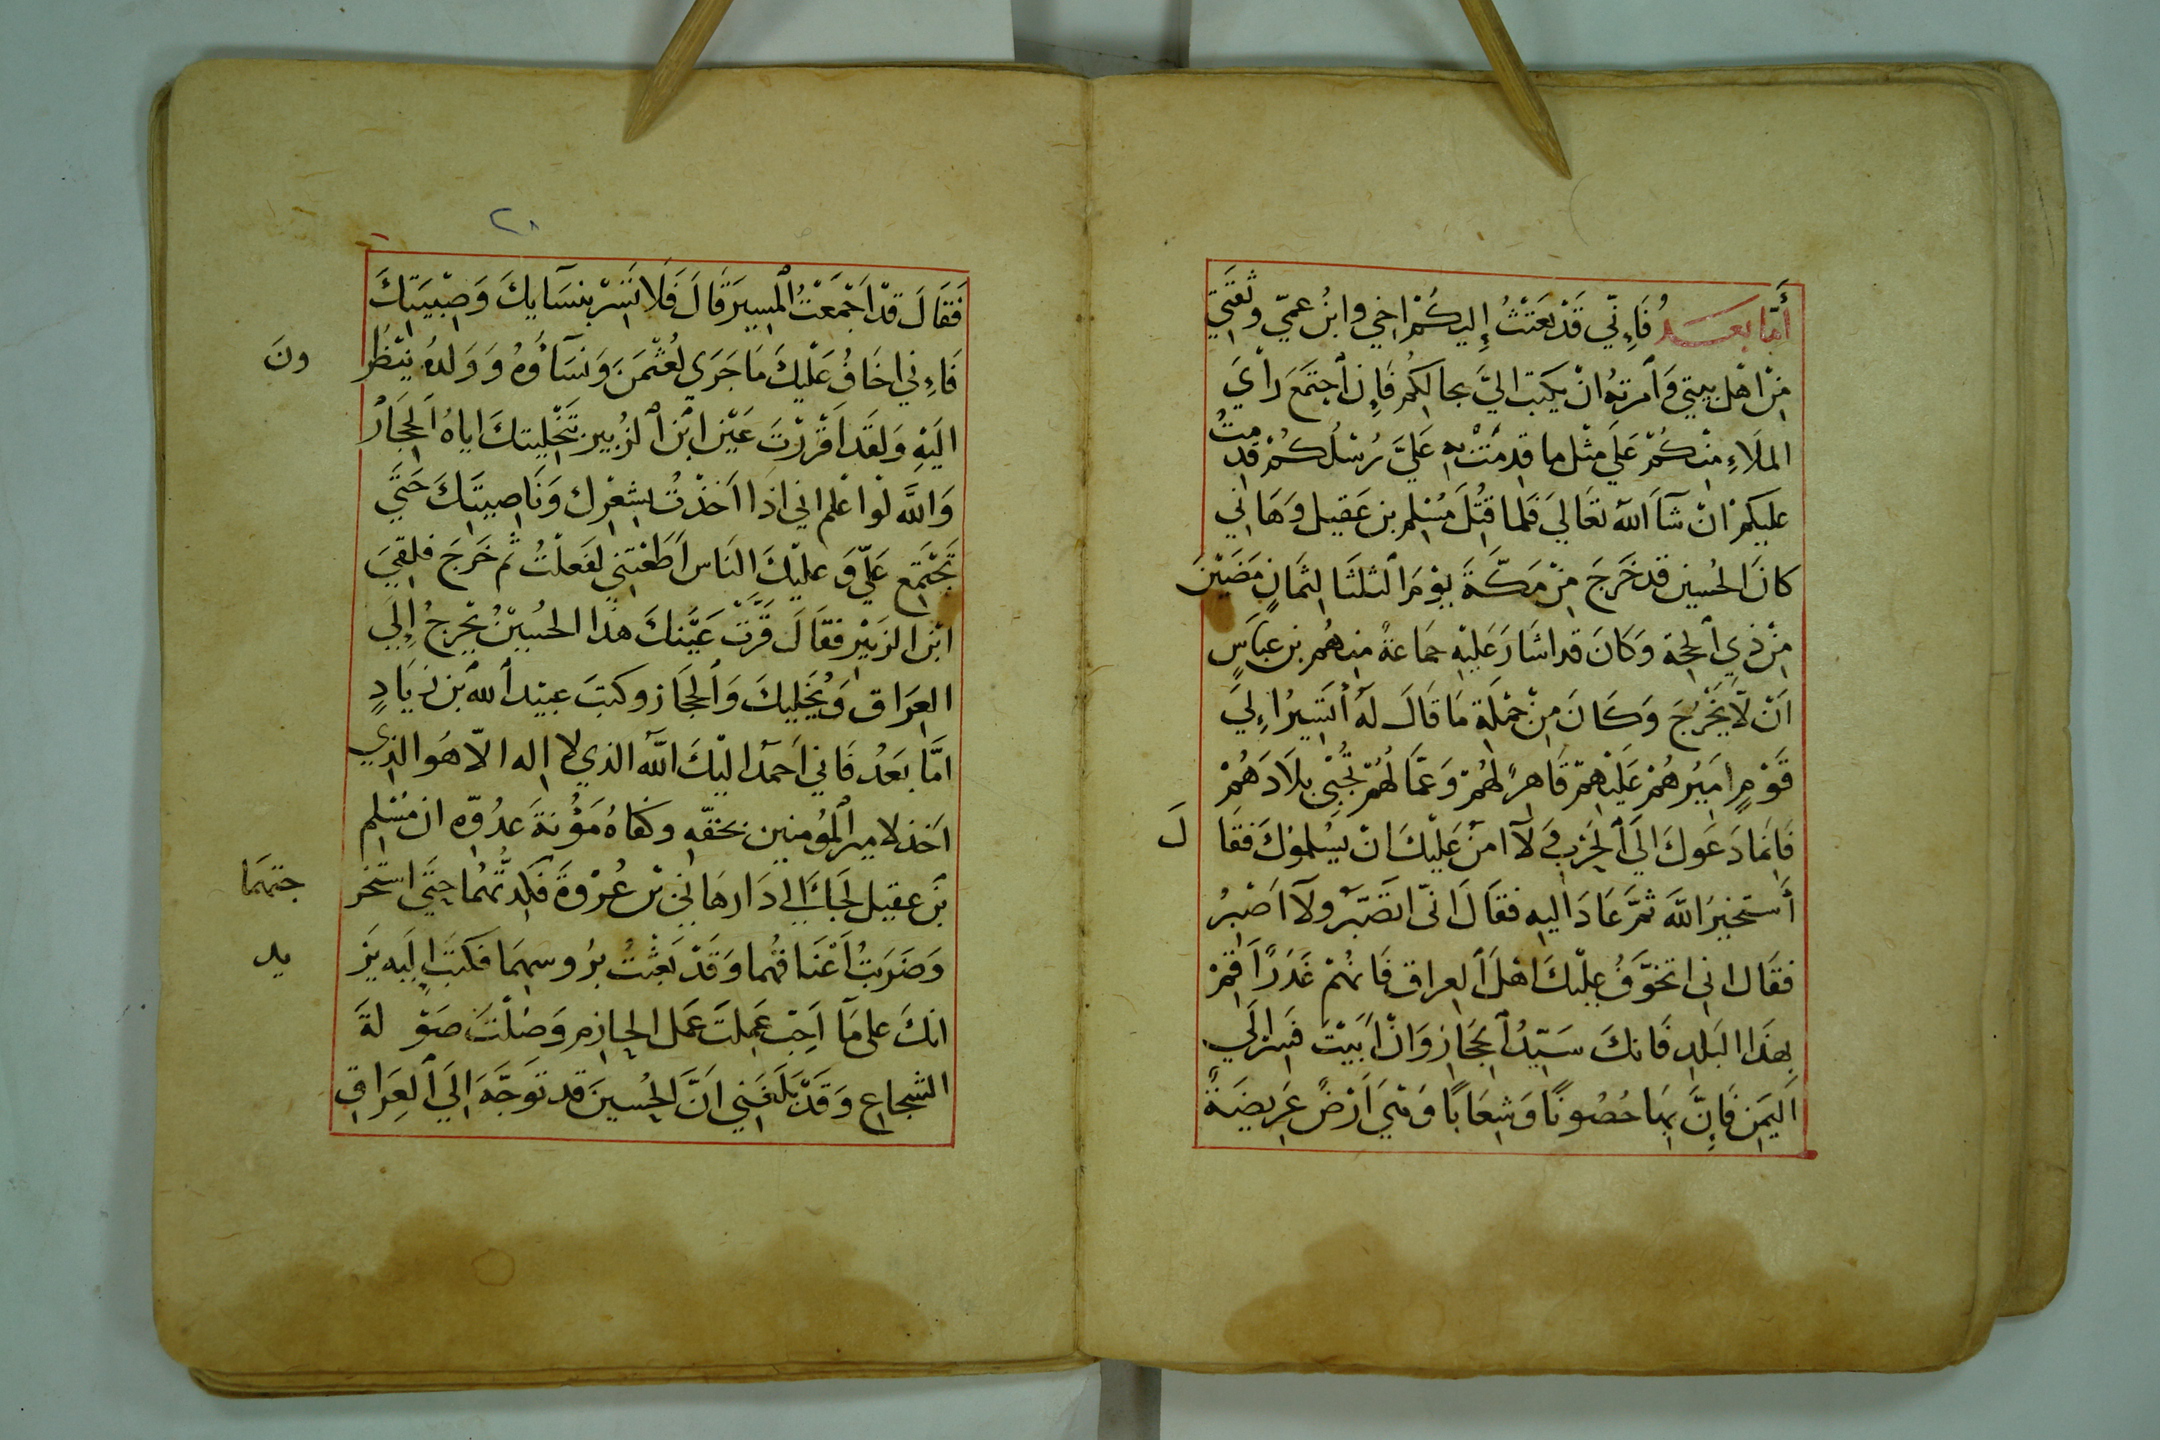 أَمَّا بعد فَاءِنّي قَدْ بَعَثْتُ إِليكُمْ اخي وابنُ عمّي وثقَتِي
مِنْ اهْل بيتي وَأمرتهُ انْ يكتب اليَّ بحالكُم فَإِن اجتَمَعَ رأيَ
الملَاءِ مِنْكُمْ عَلَي مثْل ما قدمَتْ به عَليَّ رُسُلكُمْ قدمتُ
عليكمْ انْ شآءَ اللّه تعَالي فَلما قتُلَ مُسْلم بن عَقيل وَهَاني
كانَ الحُسين قد خَرَجَ مِنْ مَكَّةَ يوْمَ الثلثَا لثمَانٍ مَضَيْنَ
مِنْ ذي الحجة وَكَانَ قد اشَارَ عَليْهِ جماعةً منهُم بن عبَاسٍ
انْ لَّا يَخْرُجَ وَكَانَ مِنْ جمْلَة مَا قَالَ لَهُ أتَسِيرُ اءِلي
قَوْمٍ امِيرُهُمْ عَلَيْهِمْ قَاهِرً لهُمْ وَعمَّالهُمْ تُجْبَي بِلَادَهُمْ
فَانمَا دَعَوكَ الَي الحَرْبِ وَلآ امنُ عَليْكَ انْ يسْلموُكَ فقَالَ
أَستخيرُ اللَّهَ ثمَّ عَادَ اليهِ فقَالَ انّي اتصَبّر ولآ اصْبرُ
فقَال اني اتخوّفُ عليْكَ اهْلَ العراق فَانهُمْ غَدَرًا اَقِمْ
بهذَا البَلدِ فَانكَ سَيّدُ الحجَاز وَانْ اَبَيْتَ فَسِرْ الَي
اليَمَن فَاِنَّ بهَا حُصُونًا وَشِعَابًا وَهيَ اَرْضٌ عَرِيضَةً
٢٨
فَقَالَ قدْ اَجْمَعْتُ المْسِيرَ قَالَ فَلَا تَسِرْ بنِسَآيكَ وَصِبْيَتِكَ
فَاءِني اخَافُ عَلَيْكَ مَا جَرَي لعُثْمنَ وَنسَآؤُهُ وَوَلدُهُ يَنْظُرونَ
اليَهِ وَلقَد اَقْرَرْتَ عَيْنَ ابْنَ الزبير بتَخْليتكَ اياهُ الْحجَازْ
وَاللَّه لَوْ اعْلَم اني اذَا اَخذْتُ بشعْرِك وَنَاصِيتَِكَ حَتَّي
تَجْتَمِع عَليّ وَعليْكَ النَاس اَطَعْتني لفَعلْتُ ثُم خَرَجَ فلقيَ
ابْن الزبَيْر فقَالَ قَرَّتْ عَيْنكَ هذَا الحُسيْنُ يَخْرجُ إلَي
العِرَاق وَيُخَلِيكَ وَالحجَاز وكتبَ عبيْد اللّه بن زيَادٍ
امَّا بَعَدُ فَاني اَحمدُ اليْكَ اللّهَ الذي لا اله الاّ هُوَ الذِي
اَخذ لامير المُؤمنين بحَقّهِ وكفاهُ مَؤُنةَ عدُوّه ان مُسْلم
بَن عقيل لجَأَ الي دَار هَانيْ بن عُرْوةَ فكدتُّهُما حتَّي استخرجتهمَا
وَضرَبتُ اَعْنَاقهُما وَقَدْ بَعثْتُ برُوسهمَا فكَتبَ اِليه يَزيد
انكَ عَلي مَآ اَحِبّ عَمِلتَ عَمل الحازم وَصُلْتَ صَوْلةَ
الشجاع وَقَدْ بَلَغَنِي اَنَّ الحُسينَ قد توَجَّهَ اِلَي العِرَاقِ